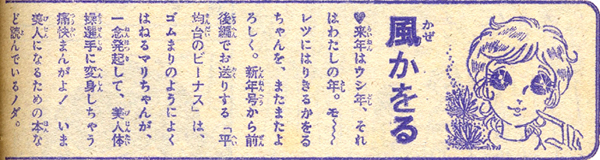 風かをる
かぜ
♥来年はウシ年、それ
はわたしの年。モ～～
レツにはりきるかをる
ちゃんを、またまたよ
ろしく。新年号から前
後編でお送りする「平
均台のビーナス」は、
ゴムまりのようによく
はねるマリちゃんが、
一念発起して、美人体
操選手に変身しちゃう
痛快まんがよ！　いま
美人になるための本な
ど読んでいるノダ。